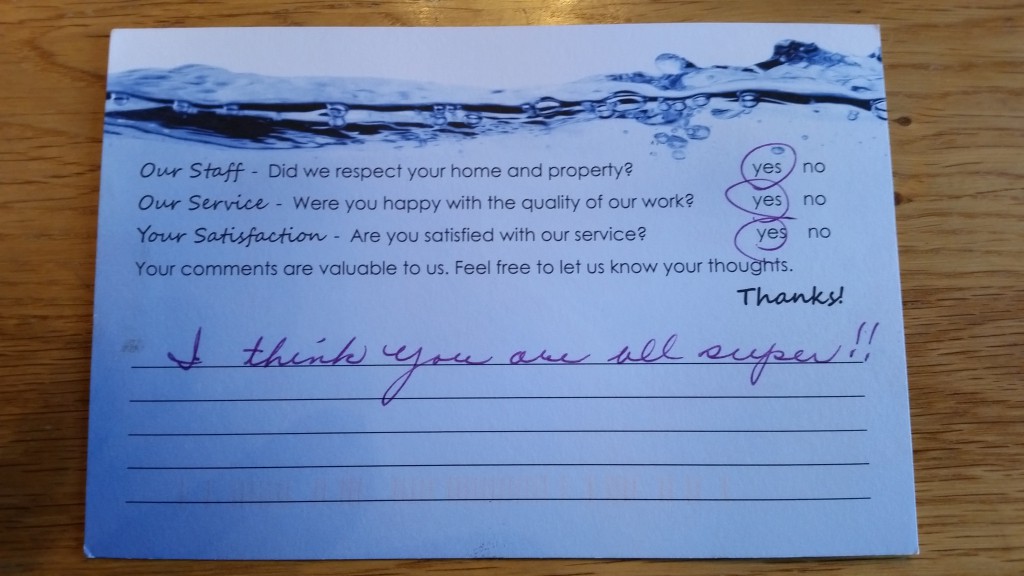 Our Staff - Did we respect your home and property? yes no
Our Service - Were you happy with the quality of our work? yes no
Your Satisfaction - Are you satisfied with our service? yes no
Your comments are valuable to us. Feel free to let us know your thoughts.
Thanks!
I think you are all super!!